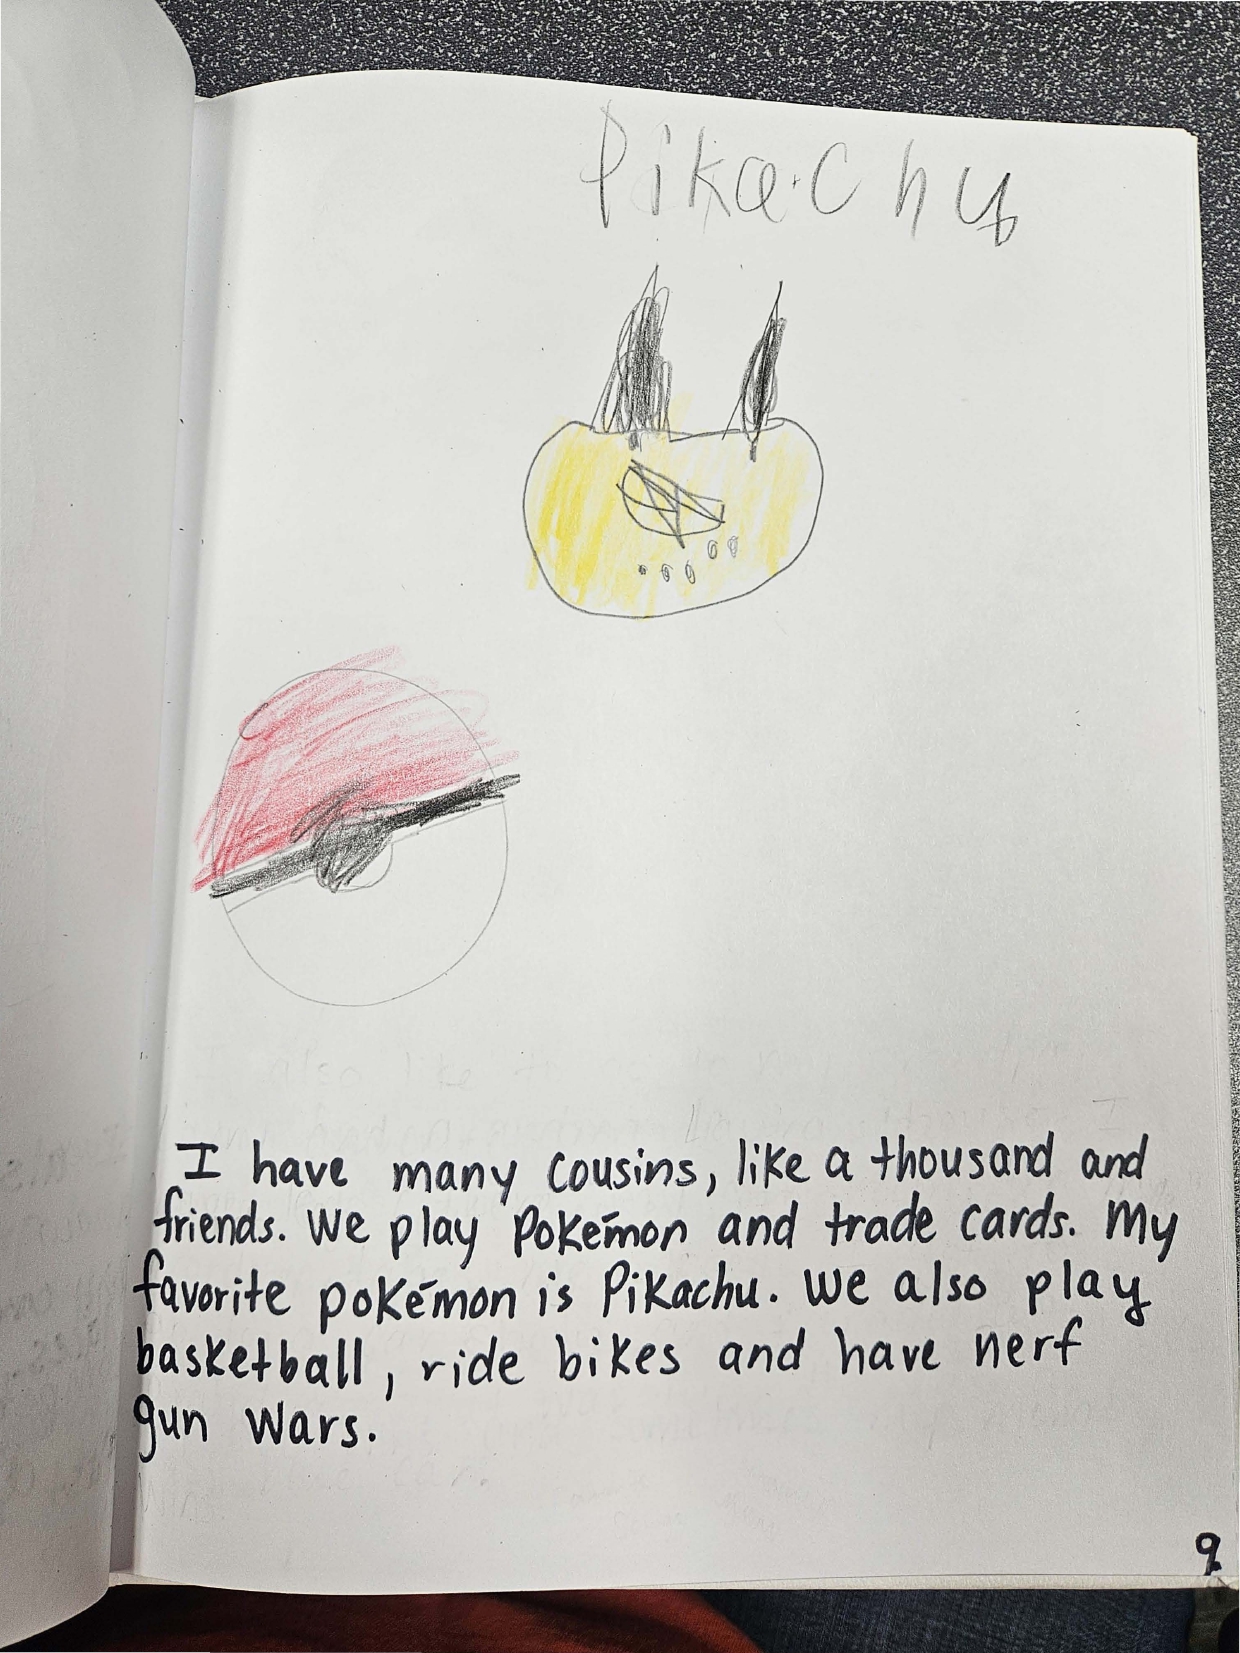 Pikachu
I have many cousins, like a thousand and
friends. We play Pokēmon and trade cards. My
favorite pokēmon is Pikachu. We also play
basketball, ride bikes and have nerf
gun wars.
9